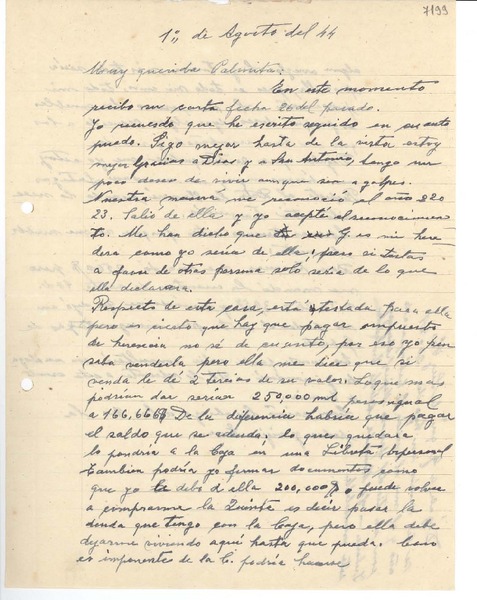 7199
1º, de Agosto del 44
Muy querida Palmita:
En este momento
recibo su carta fecha 26 del pasado.
Yo recuerdo que he escrito seguido en cuanto
puedo. Sigo mejor hasta de la vista estoy
mejor gracias a Dios y a San Antonio, tengo un
poco deseo de vivir aunque sea a golpes.
Nuestra mamá me reconoció el año 22 o
23. Salió de ella y yo acepté el reconocimien
to. Me han dicho que G. es mi here
dera como yo sería de ella; pero si testas
a favor de otra persona solo sería de lo que
ella declarara.
Respecto de esta casa, está testada para ella
pero es cierto que hay que pagar impuestos
de herencia no sé de cuánto, por eso yo pen
saba venderla pero ella me dice que si
venda le dé 2 tercios de su valor. Lo que más
podrían dar serían 250,000 mil pesos igual
a 166,666$ De la diferencia habría que pagar
el saldo que se adeuda; lo que quedara
lo pondría a la Caja en una Libreta bipersonal
También podría yo formar documentos como
que yo le debo a ella 200,000$ o puede volver
a comprarme la Quinta es decir pasar la
deuda que tengo con la Caja, pero ella debe
dejarme viviendo aquí hasta que pueda. Como
es imponente de la C. podría hacerse